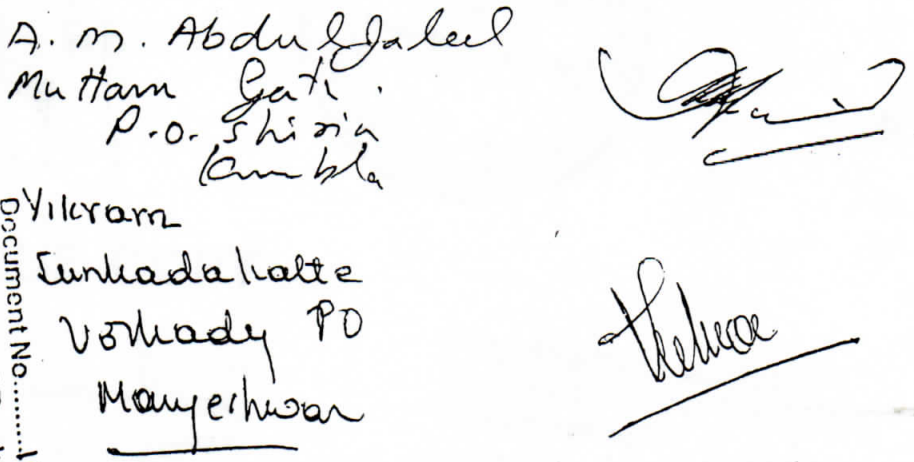 A. m. Abdul Jaleel
Muttam Gate.
P.o. Shiria
Kumbla
Vikram
Sunkadakatte
Vorkady PO
Manjeshwar
Document No.........